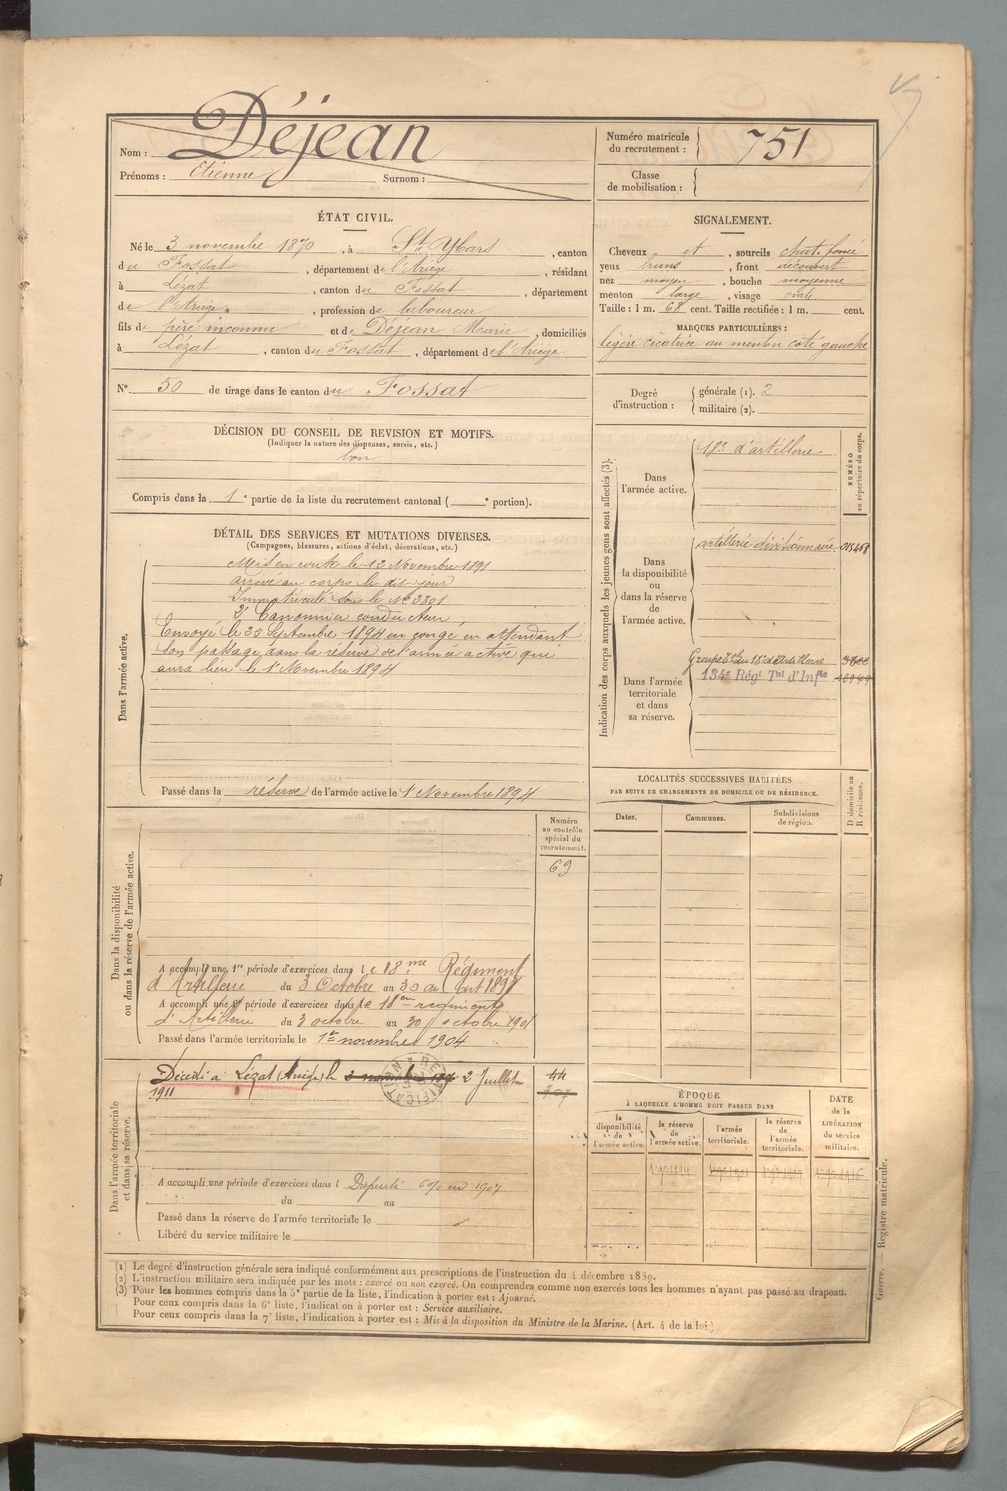 Nom : Déjean
Prénoms : Etienne Surnom :
Numéro matricule du recrutement : 751
Classe de mobilisation :
ÉTAT CIVIL.
Né le 3 novembre 1870, à St Ybars, canton
du Fossat, département de l'Ariège, résidant
à Lézat, canton du Fossat, département
de l'Ariège, profession de laboureur
fils de père inconnu et de Déjean Marie, domiciliés
à Lézat, canton du Fossat, département de l'Ariège
N° 50 de tirage dans le canton du Fossat
DÉCISION DU CONSEIL DE REVISION ET MOTIFS.
(Indiquer la nature des dispenses, sursis, etc.)
bon
Compris dans la 1e partie de la liste du recrutement cantonal ( e portion).
SIGNALEMENT.
Cheveux et, sourcils chat. foncé
yeux bruns, front découvert
nez moyen, bouche moyenne
menton large, visage ovale
Taille : 1 m. 68 cent. Taille rectifiée : 1 m. cent.
MARQUES PARTICULIÈRES :
légère cicatrice au menton coté gauche
Degré d'instruction : générale (1). 2
militaire (2).
DÉTAIL DES SERVICES ET MUTATIONS DIVERSES.
(Campagnes, blessures, actions d'éclat, décorations, etc.)
Dans l'armée active.
Mis en route le 12 Novembre 1891
arrivé au corps le dit jour
Immatriculé sous le N° 3301
2e Canonnier conducteur
Envoyé le 25 Septembre 1894 en congé en attendant
son passage dans la réserve de l'armée active qui
aura lieu le 1er Novembre 1894
Passé dans la réserve de l'armée active le 1er Novembre 1894
Indication des corps auxquels les jeunes gens sont affectés (3).
NUMÉRO au répertoire du corps.
Dans l'armée active.
18e d'artillerie
Dans la disponibilité ou dans la réserve de l'armée active.
artillerie divisionnaire
Dans l'armée territoriale et dans sa réserve.
134e Régt Tal d'Infie
LOCALITÉS SUCCESSIVES HABITÉES
PAR SUITE DE CHANGEMENTS DE DOMICILE OU DE RÉSIDENCE.
Dates. Communes. Subdivisions de région.
D domicile ou R résidence.
Dans la disponibilité ou dans la réserve de l'armée active.
Numéro au contrôle spécial du recrutement.
69
A accompli une 1re période d'exercices dans le 18me Régiment
d'Artillerie du 3 Octobre au 30 du
A accompli une 2e période d'exercices dans le 18em régiment
d'Artillerie du 3 octobre au 30 octobre 1901
Passé dans l'armée territoriale le 1er novembre 1904
Dans l'armée territoriale et dans sa réserve.
Décédé à Lézat (Ariège) le 3 novembre 2 Juillet
1911
44
RECTIFICATION
A accompli une période d'exercices dans l en 1907
du au
Passé dans la réserve de l'armée territoriale le
Libéré du service militaire le
ÉPOQUE
À LAQUELLE L'HOMME DOIT PASSER DANS
la disponibilité de l'armée active.
la réserve de l'armée active.
l'armée territoriale.
la réserve de l'armée territoriale.
DATE de la LIBÉRATION du service militaire.
Guerre. Registre matricule.
(1) Le degré d'instruction générale sera indiqué conformément aux prescriptions de l'instruction du 4 décembre 1889.
(2) L'instruction militaire sera indiquée par les mots : exercé ou non exercé. On comprendra comme non exercés tous les hommes n'ayant pas passé au drapeau.
(3) Pour les hommes compris dans la 5e partie de la liste, l'indication à porter est : Ajourné.
Pour ceux compris dans la 6e liste, l'indication à porter est : Service auxiliaire.
Pour ceux compris dans la 7e liste, l'indication à porter est : Mis à la disposition du Ministre de la Marine. (Art. 4 de la loi.)